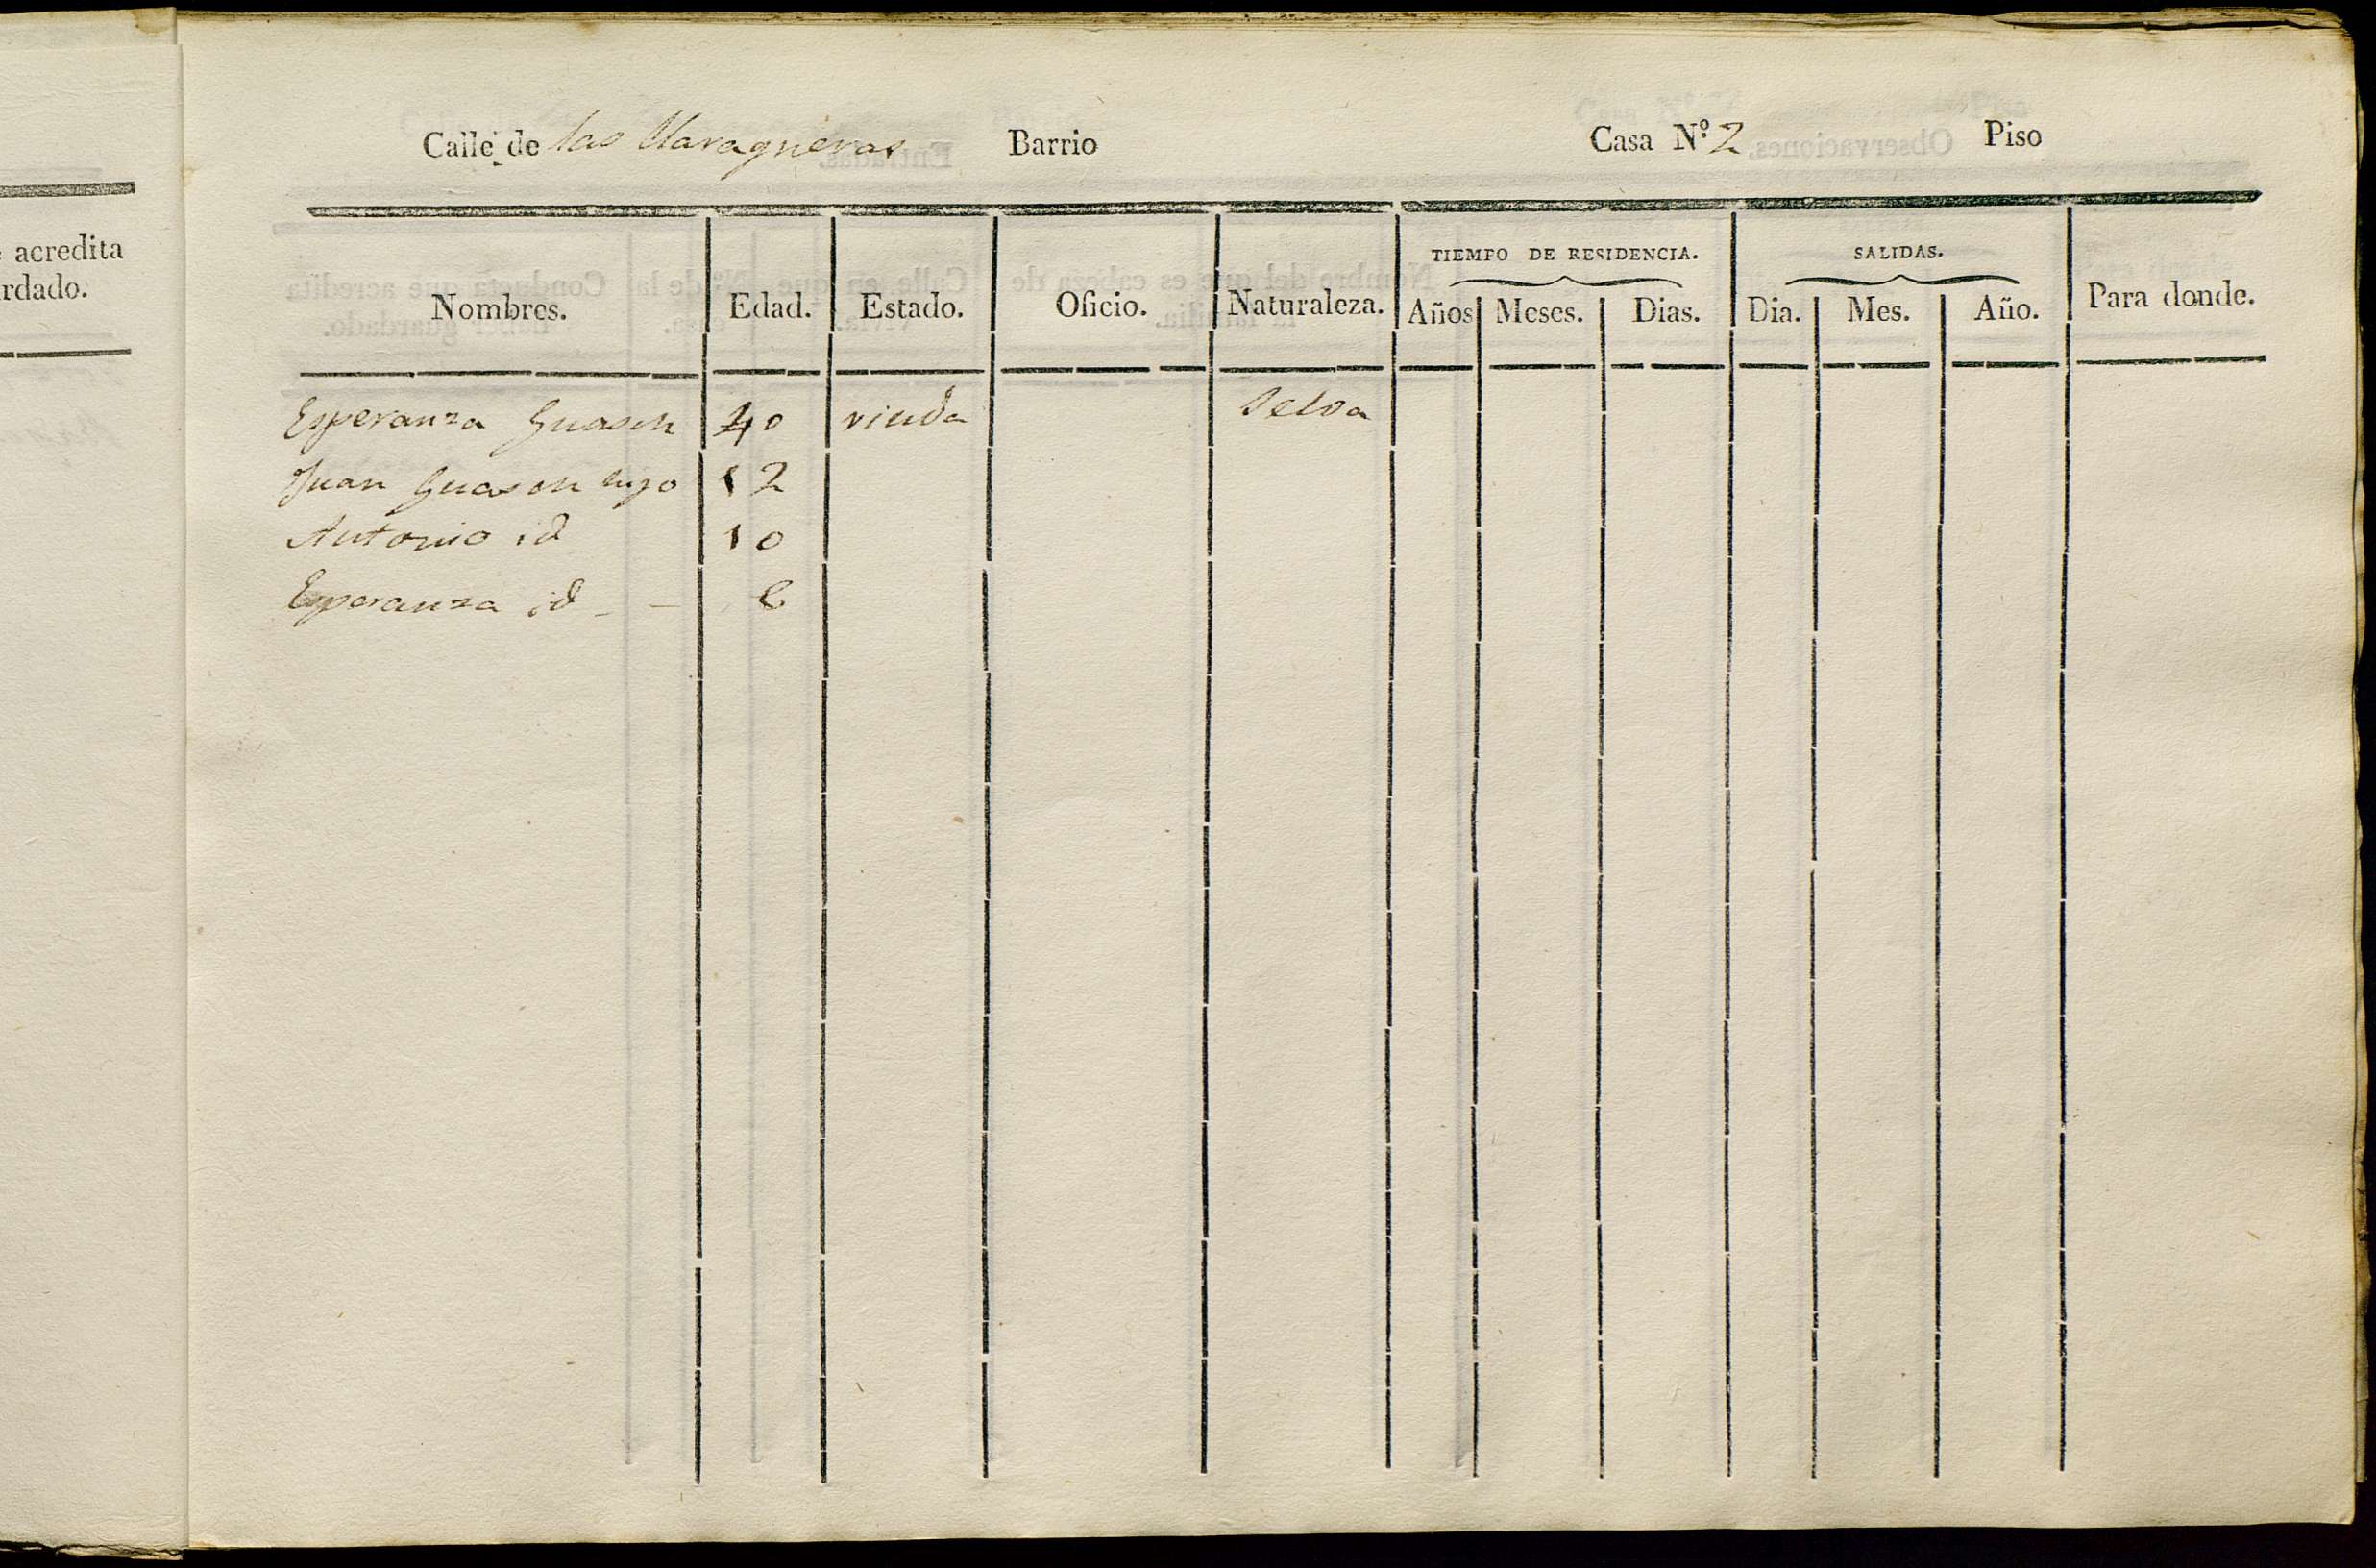 acredita
rdado.
Calle de las Maragueras Barrio Casa N.º 2 Piso
TIEMPO DE RESIDENCIA. SALIDAS.
Nombres. Edad. Estado. Oficio. Naturaleza. Años Meses. Dias. Dia. Mes. Año. Para donde.
Esperanza Guasch 40 viuda Selva
Juan Guasch hijo 12
Antonio id 10
Esperanza id - - 8